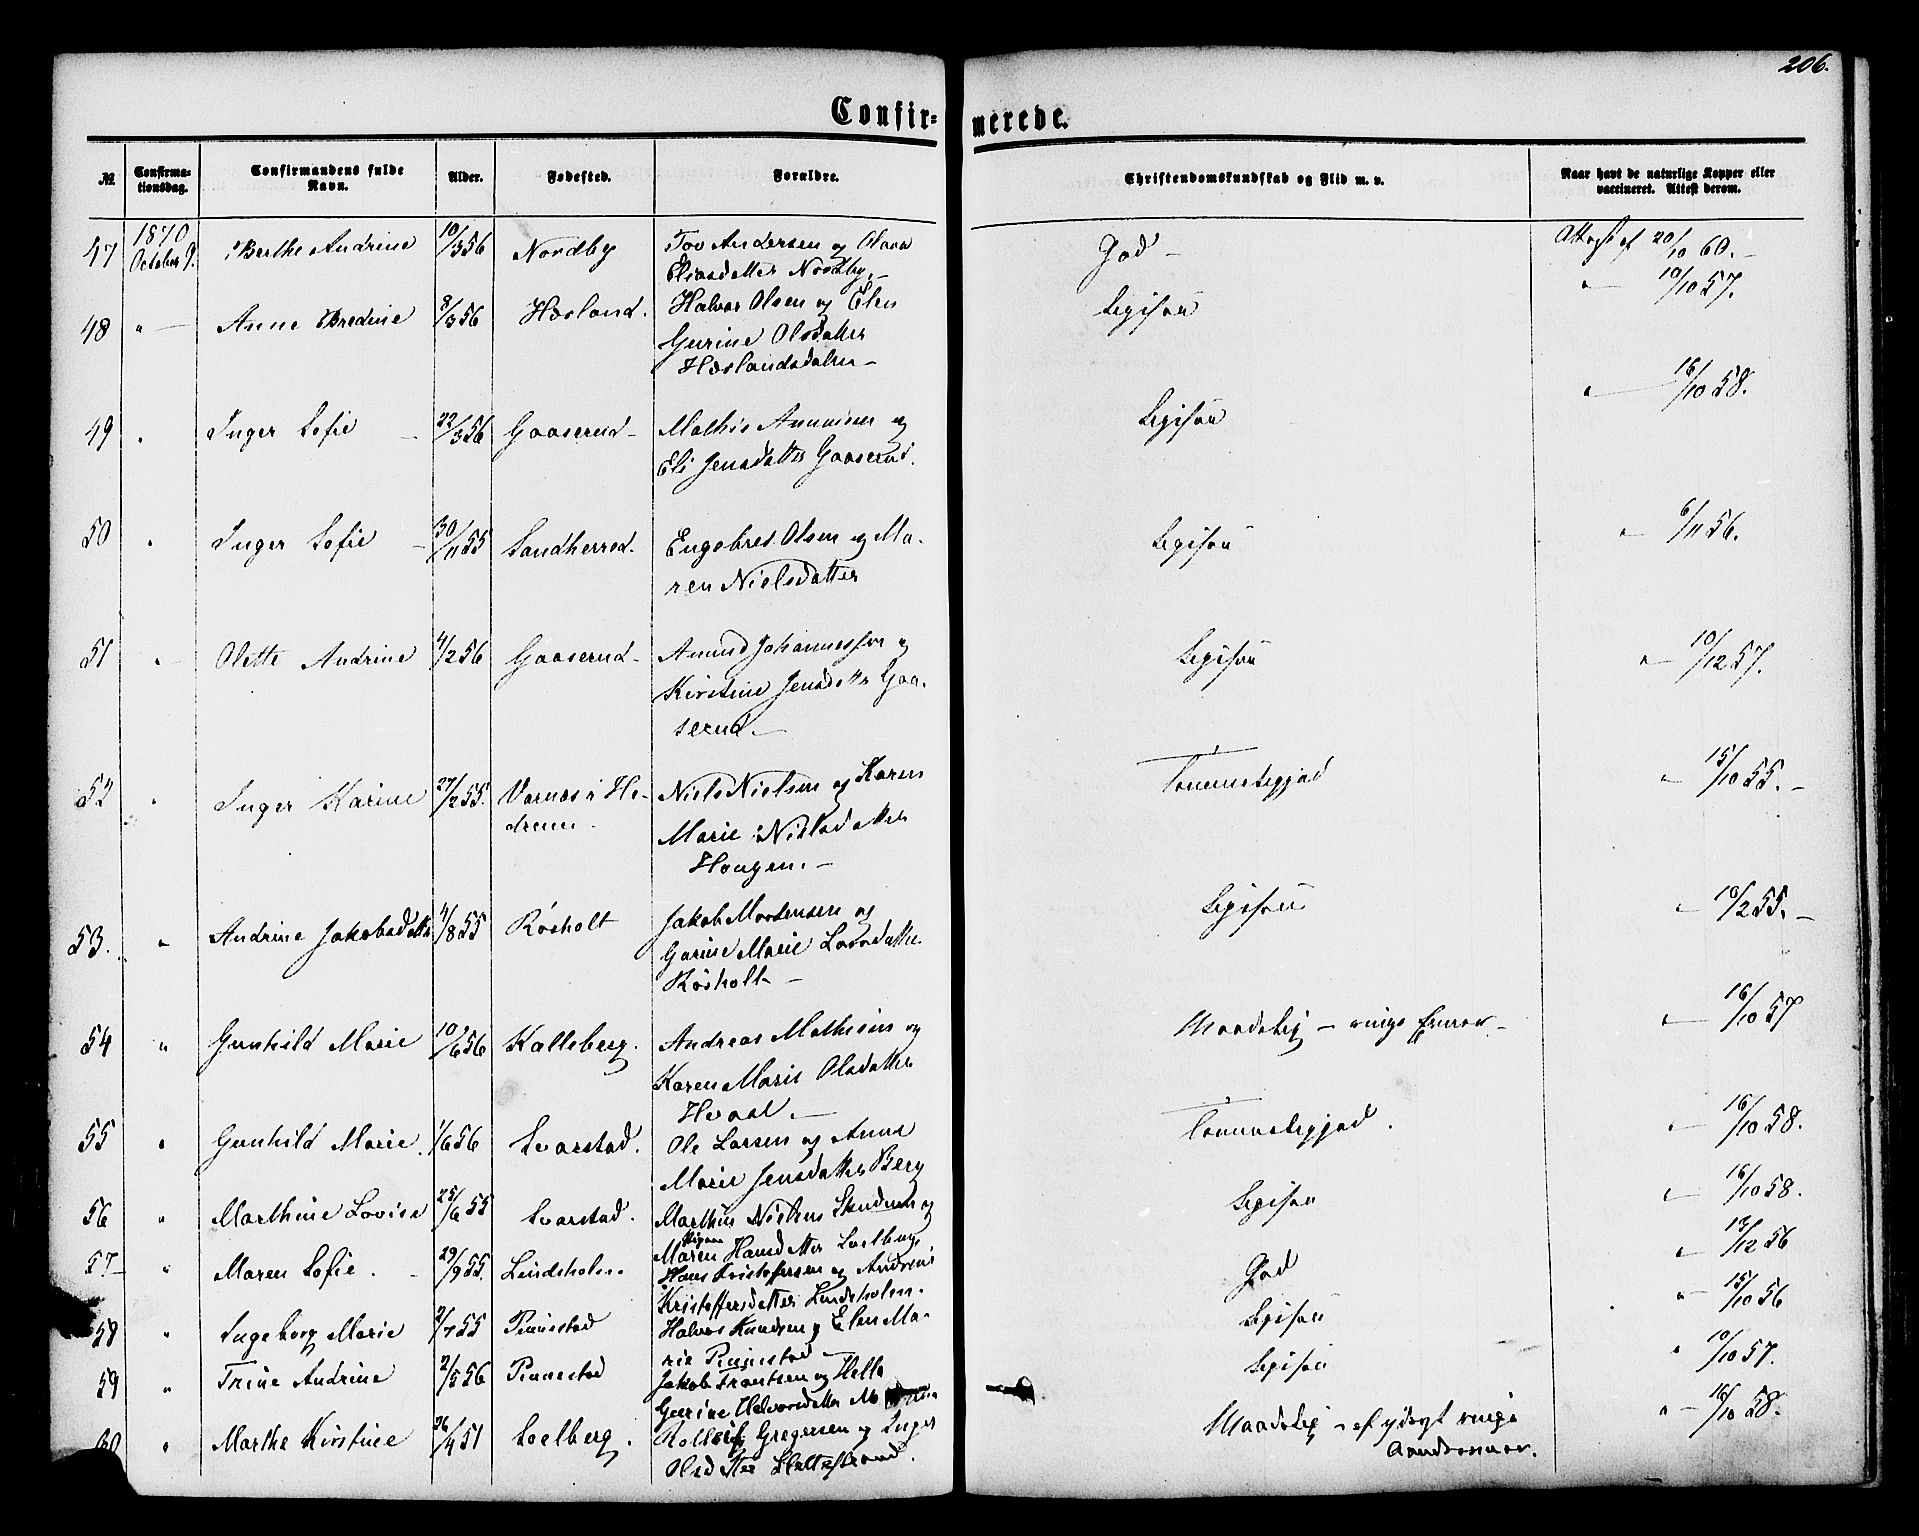 206.
Confirmerede.
№ Confirmationsdag. Confirmandens fulde Navn. Alder. Fødested. Forældre. Christendomskundskab og Flid m. v. Naar havt de naturlige Kopper eller vaccineret. Attest derom.
47 1870 October 9. Berthe Andrine 10/3 56 Nordby Tov Andersen og Olava God – Attest af 20/10 60. –
Eliasdatter Nordby. –
48 " – Anne Bredine 8/3 56 Hæsland. Halvor Olsen og Elen Ligesaa " – 10/10 57.
Gurine Olsdatter
Hæslandsdalen –
49 " Inger Sofie – 22/3 56 Gaaserud – Mathis Amundsen og Ligesaa " – 16/10 58.
Eli Jensdatter Gaaserud.
50 " Inger Sofie – 30/11 55 Sandherred. Engebret Olsen og Ma- Ligesaa " – 6/11 56.
ren Nielsdatter
51 " Olette Andrine 4/2 56 Gaaserud – Amund Johannessen og Ligesaa " – 10/12 57.
Kirstine Jensdatter Gaa-
serud. –
52 " Inger Karine 27/2 55. Varnæs i He- Niels Nielsen og Karen Temmeliggod " – 15/10 55. –
drum. Marie Nielsdatter
Haugen. –
53. " Andrine Jakobsdatter 4/8 55 Røsholt Jakob Mortensen og Ligesaa " – 10/2 55. –
Gurine Marie Larsdatter
Røsholt –
54 " Gunhild Marie 10/6 56 Kalleberg. Andreas Mathisen og Maadelig – ringe Evner – " – 16/10 57
Karen Marie Olsdatter
Hvaal. –
55 " Gunhild Marie. 1/6 56 Svarstad. Ole Larsen og Anne Temmeliggod. " – 16/10 58.
Marie Jensdatter Berg
56 " Marthine Lovise 25/6 55 Svarstad. Marthin Nielsen og Ligesaa " – 16/10 58.
Maren Hansdatter
57 – " Maren Sofie. – 29/9 55. Lindsholm. Hans Kristoffersen og Andrine God " – 13/12 56
Kristoffersdatter Lindsholm.
58 " Ingeborg Marie 2/7 55 Rinnestad Halvor Knudsen og Elen Ma- Ligesaa " – 15/10 56
rie Rinnestad –
59 " Trine Andrine 2/5 56 Rinnestad Jakob Frantsen og Helle Ligesaa " 10/10 57.
Gurine Halvorsdatter
60 " Marthe Kirstine 26/4 51 Solberg. Rollef Gregersen og Inger Maadelig – af ydrigt ringe " – 16/10 58.
Olsdatter Aandsevner.